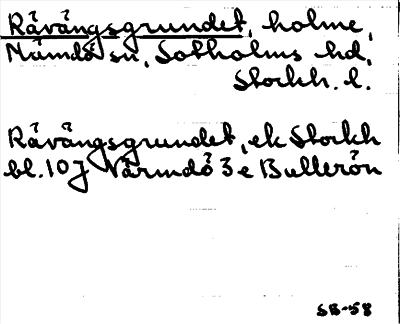 Råvångsgrundet, holme,
Nämdö sn, Sotholms hd,
Stockh. l.
Råvångsgrundet, ek Stockh
bl. 107 Värmdö 3 e Bullerön
SB-58